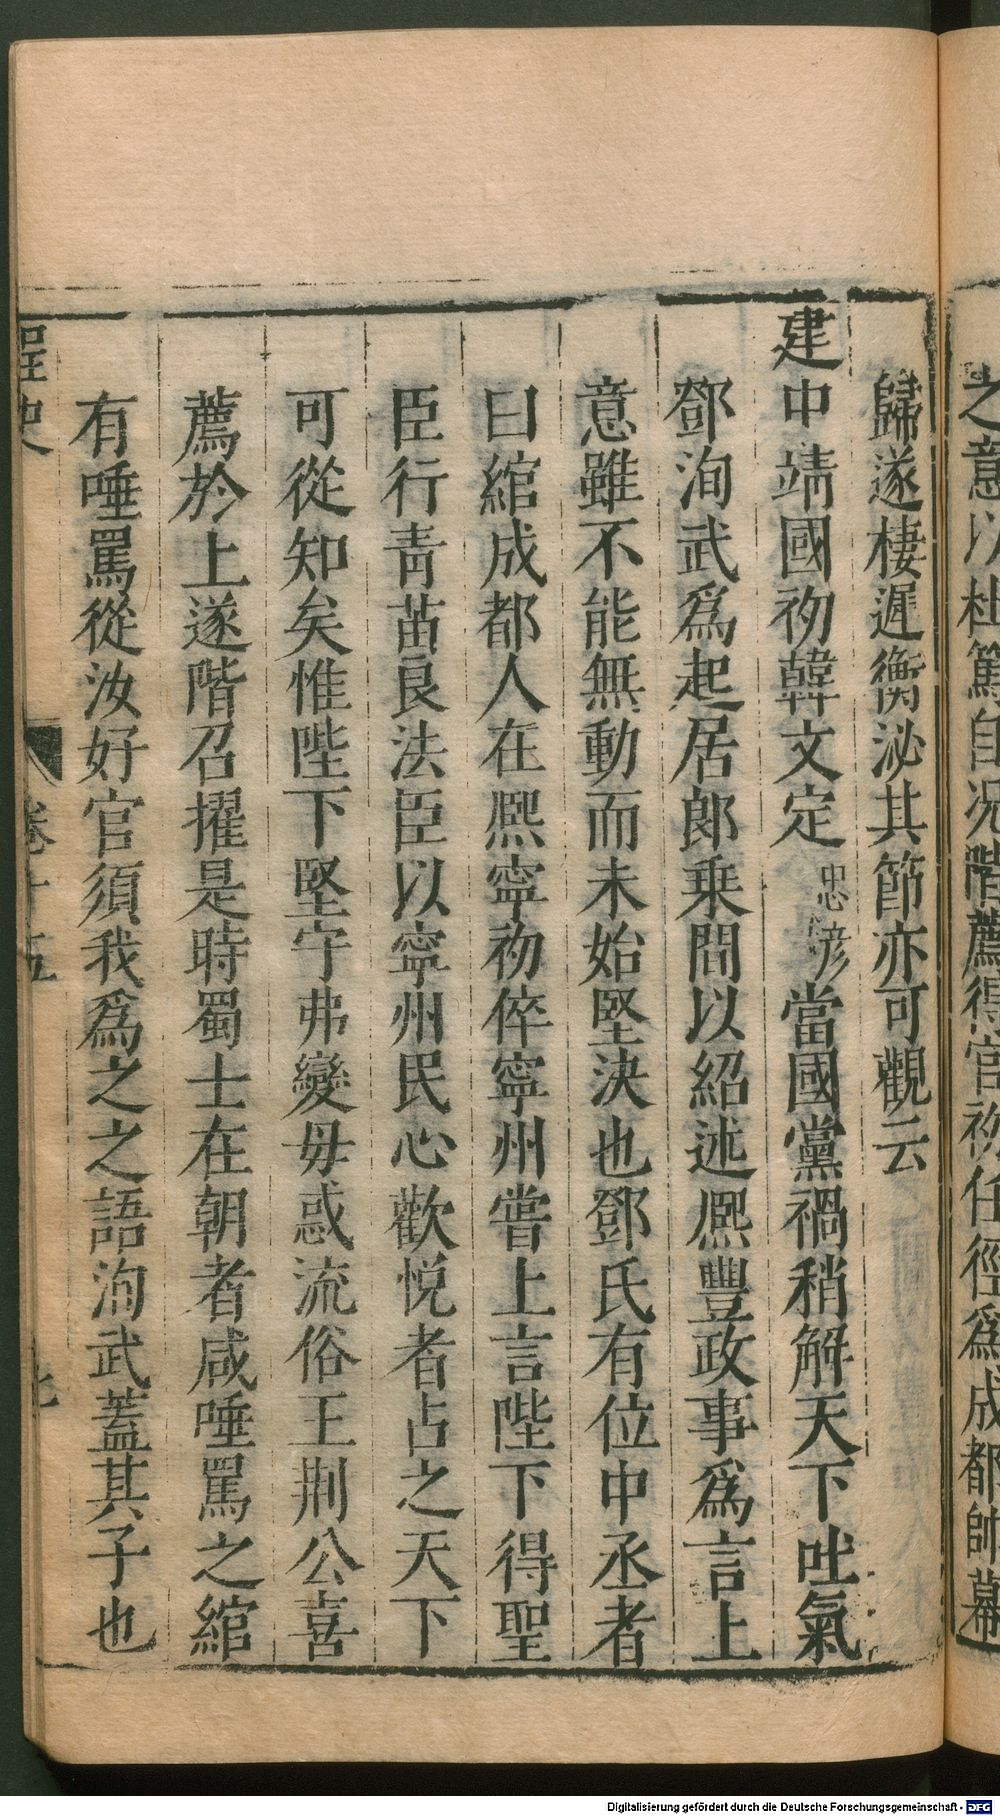 之意以杜篤自况階薦得官初任徑爲成都帥幕
歸遂棲遲衡泌其節亦可觀云
建中靖國初韓文定忠彦當國黨禍稍解天下吐氣
鄧洵武爲起居郎乗間以紹述熈豐政事爲言上
意雖不能無動而未始堅決也鄧氏有位中丞者
曰綰成都人在熈寧初倅寧州嘗上言陛下得聖
臣行青苗良法臣以寧州民心歡悦者占之天下
可從知矣惟陛下堅守弗變毋惑流俗王荆公喜
薦於上遂階召擢是時蜀士在朝者咸唾罵之綰
有唾罵從汝好官須我爲之之語洵武葢其子也
桯史
卷十五
七
Digitalisierung gefördert durch die Deutsche Forschungsgemeinschaft - DFG